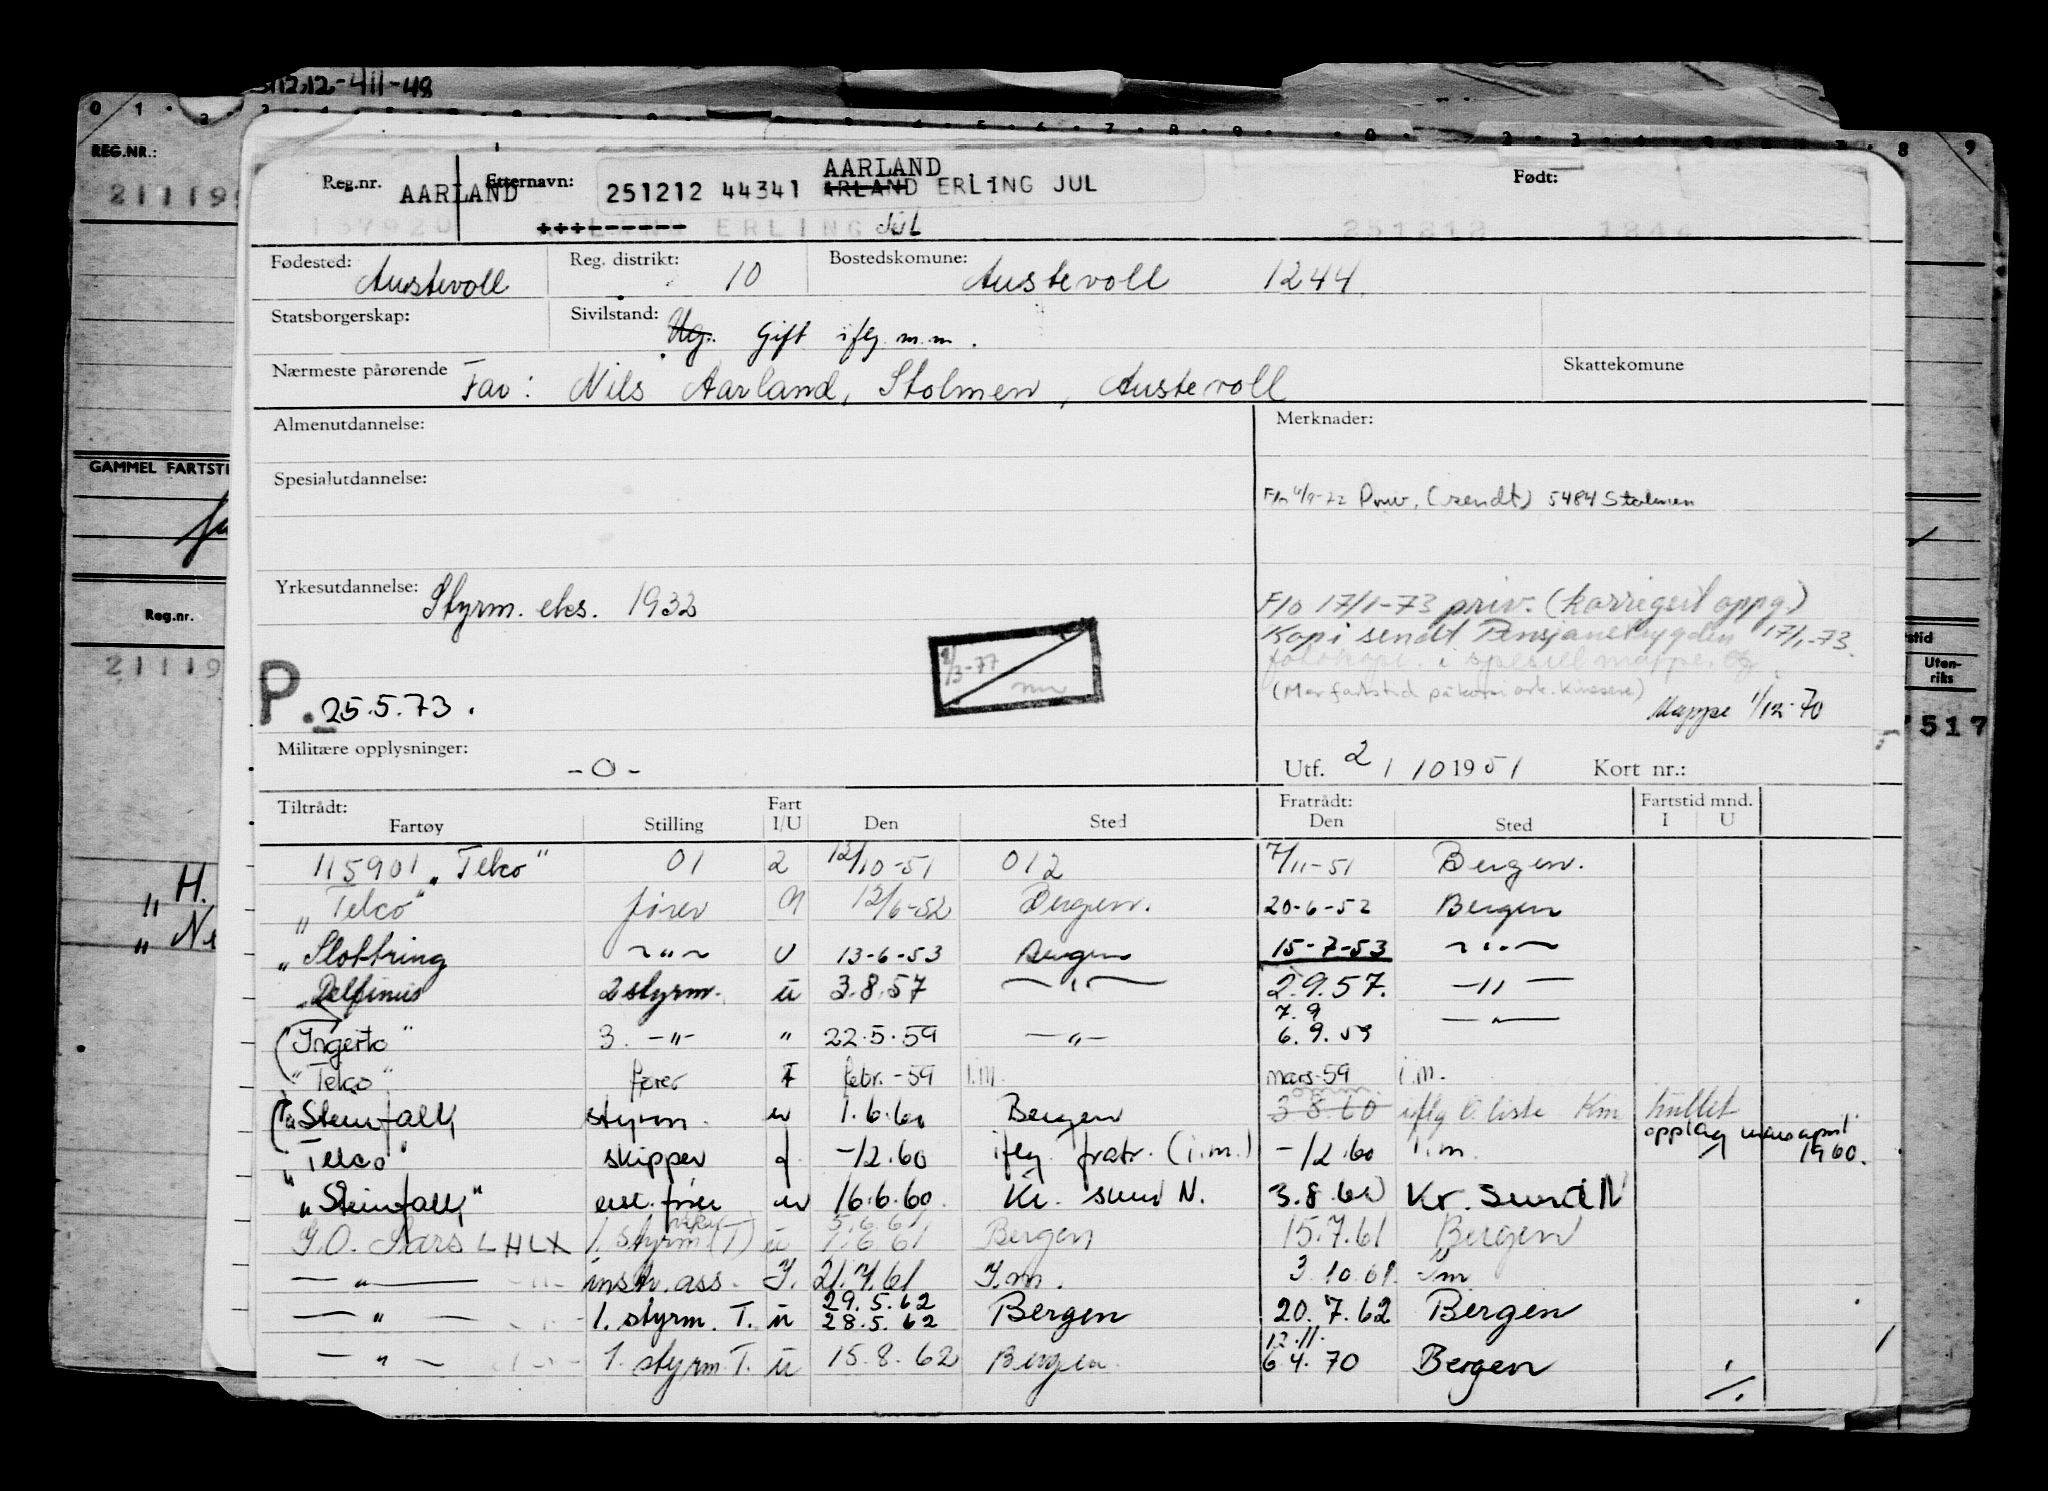 251212-411-48
REG.NR.:
21119
GAMMEL FARTSTI
Reg.nr.
21119
"H.
AARLAND
Reg.nr. AARLAND Etternavn: 251212 44341 ARLAND ERLING JUL Født:
137920 ERLING Jul 251212
Fødested: Austevoll Reg. distrikt: 10 Bostedskomune: Austevoll 1244
Statsborgerskap: Sivilstand: Ug. Gift iflg. m.m.
Nærmeste pårørende Far: Nils Aarland, Stolmen, Austevoll Skattekomune
Almenutdannelse: Merknader:
Spesialutdannelse:
Priv. (sendt) 5484 Stolmen
Yrkesutdannelse: Styrm. eks. 1932
F/o 17/1-73 priv. (korrigert oppg.)
Kopi sendt Pensjonstrygden 17/1-73.
fotokopi i spesiell mappe.
P. 25.5.73.
1/3-77
Mappe 1/12-70
Militære opplysninger: -0-
Utf. 2 / 10 1951 Kort nr.:
Tiltrådt: Fartøy Stilling Fart I/U Den Sted Fratrådt: Den Sted Fartstid mnd. I U
115901 "Telco" 01 2 12/10-51 012 7/11-51 Bergen.
"Telco" fører 12/6-52 Bergen. 20-6-52 Bergen
"Slottring ~"~ U 13-6-53 Bergen 15-7-53 ~"~
"Delfinus 2 styrm. u 3.8.57 —"— 2.9.57. —"—
7.9
"Ingerto" 3. —"— " 22.5.59 —"— 6.9.59 —"—
"Telco" fører I febr.-59 i.m. mars-59 i.m.
"Steinfalk styrm. u 1.6.60 Bergen 3.8.60 iflg. liste
opplag mars april 1960.
"Telco" skipper -12.60 iflg. fratr. (i.m.) -12.60 i.m.
"Steinfalk" u 16.6.60. Kr. sund N. 3.8.60 Kr. Sund N
5.6.61.
G.O. Sars LHLX 1. styrm (T) u 1.6.61 Bergen 15.7.61 Bergen
—"— instr. ass. I. 21.7.61 I.m. 3.10.61. i.m
29.5.62
—"— 1. styrm. T. u 28.5.62 Bergen 20.7.62 Bergen
12.11.
—"— 1. styrm. T. u 15.8.62 Bergen. 6.4.70 Bergen
Uten-
riks
517